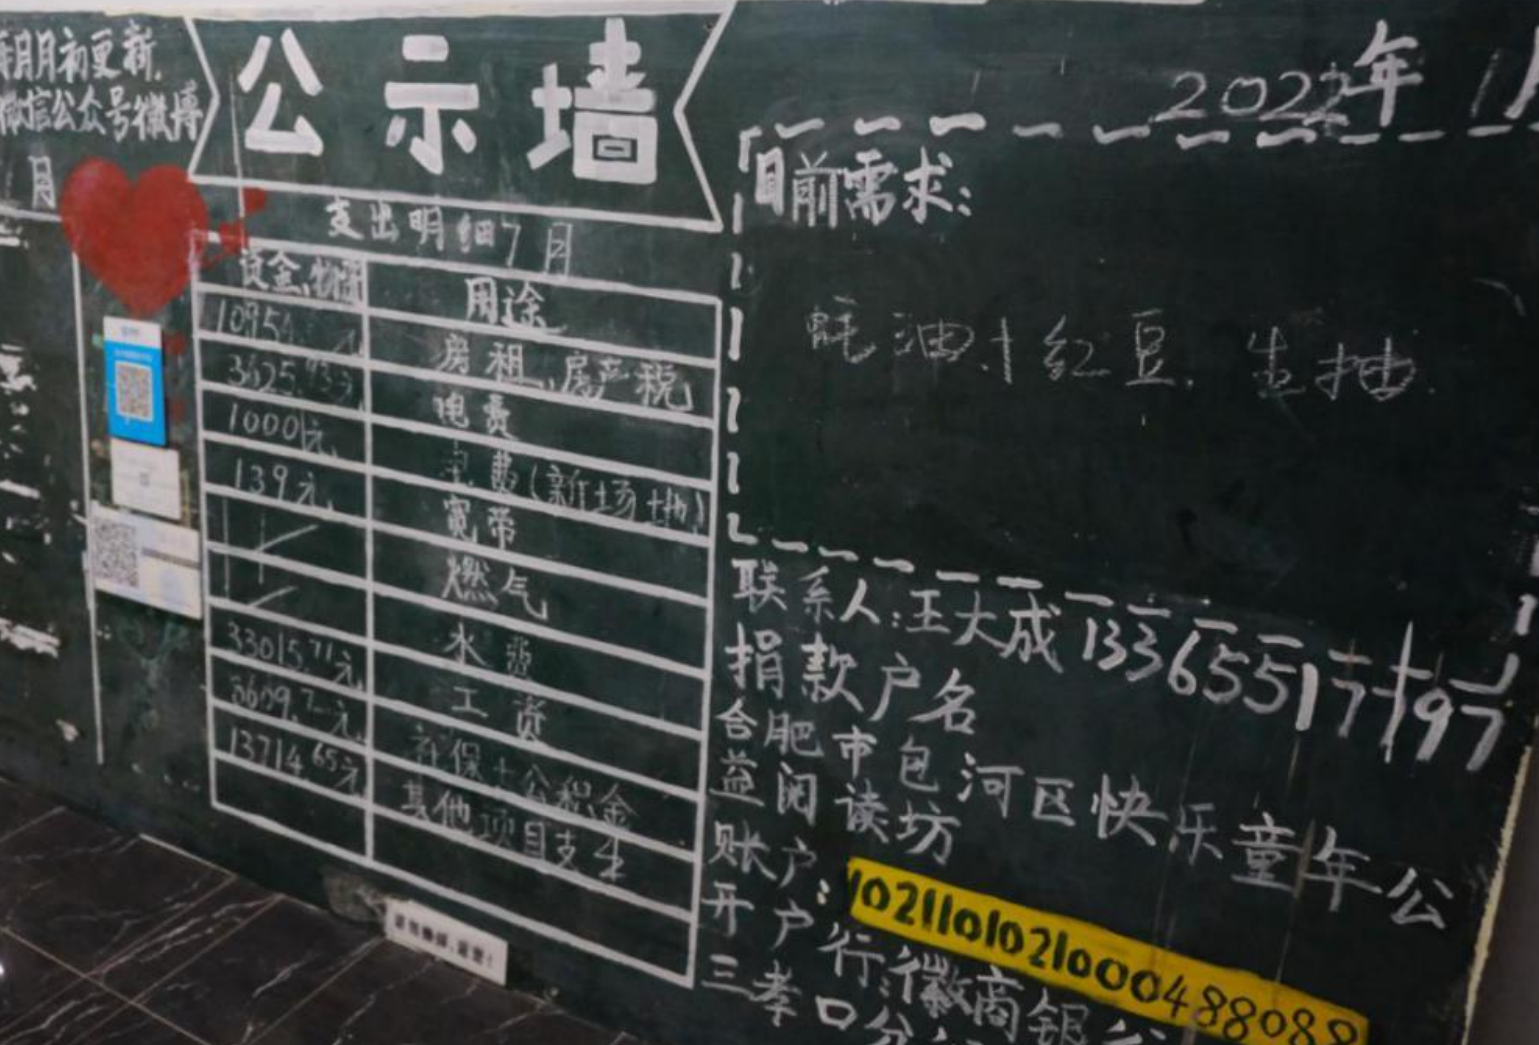 月初更新
微信公众号微博
月
公示墙
支出明细7月
资金、物资 用途
1095 房租、房产税
3625.93元 电费
1000元 电费(新场地)
139元 宽带
燃气
水费
33015.71元 工资
社保+公积金
13714.65元 其他项目支出
2022年1月
目前需求:
蚝油、红豆、生抽
联系人:王大成 13365517
捐款户名
合肥市包河区快乐童年公
益阅读坊
账户:1021101021000488088
开户行:徽商银行
三孝口分